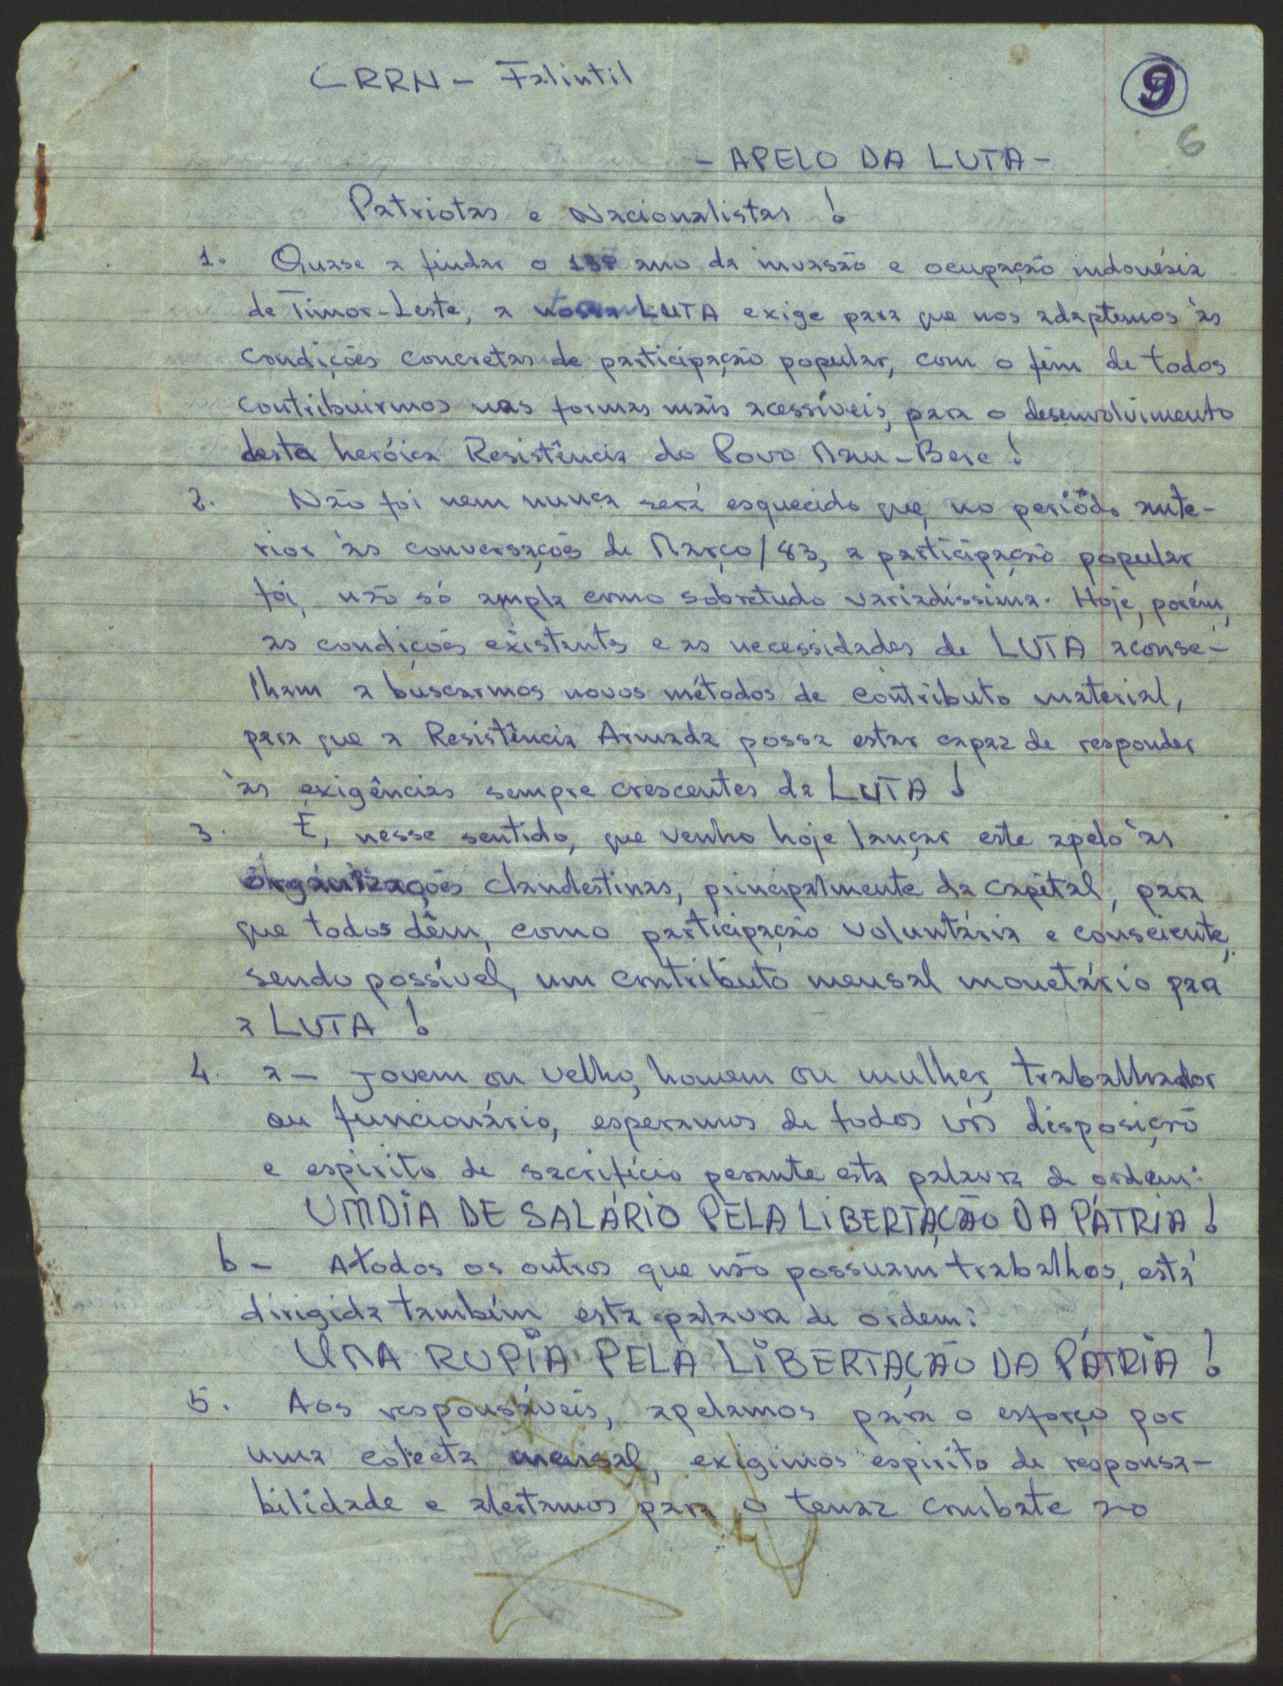 CRRN - Falintil
9
6
- APELO DA LUTA -
Patriotas e Nacionalistas !
1. Quase a findar o 13º ano da invasão e ocupação indonésia
de Timor-Leste, a nossa LUTA exige para que nos adaptemos às
condições concretas de participação popular, com o fim de todos
contribuirmos nas formas mais acessíveis, para o desenvolvimento
desta heróica Resistência do Povo Mau-Bere !
2. Não foi nem nunca será esquecido que, no período ante-
rior às conversações de Março/83, a participação popular
foi, não só ampla como sobretudo variadíssima. Hoje, porém,
as condições existentes e as necessidades de LUTA aconse-
lham a buscarmos novos métodos de contributo material,
para que a Resistência Armada possa estar capaz de responder
às exigências sempre crescentes da LUTA !
3. É, nesse sentido, que venho hoje lançar este apelo às
organizações clandestinas, principalmente da capital, para
que todos dêm, como participação voluntária e consciente,
sendo possível, um contributo mensal monetário para
a LUTA !
4. a - Jovem ou velho, homem ou mulher, trabalhador
ou funcionário, esperamos de todos vós disposição
e espirito de sacrifício perante esta palavra de ordem:
UM DIA DE SALÁRIO PELA LIBERTAÇÃO DA PÁTRIA !
b - A todos os outros que não possuam trabalhos, está
dirigida também esta palavra de ordem:
UMA RUPIA PELA LIBERTAÇÃO DA PÁTRIA !
5. Aos responsáveis, apelamos para o esforço por
uma colecta mensal, exigimos espirito de responsa-
bilidade e alertamos para o tenaz combate ao